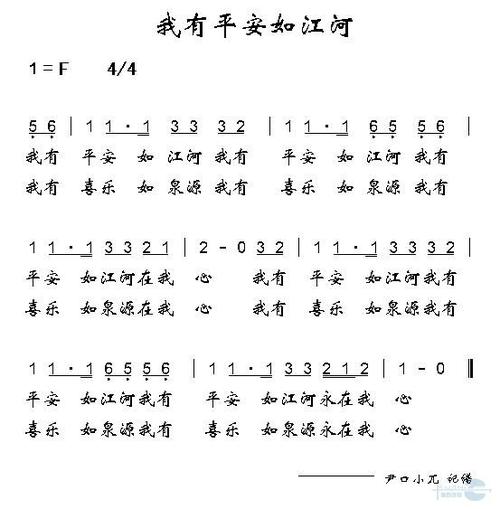 我有平安如江河
1=F 4/4
5 6 | 1 1·1 3 3 3 2 | 1 1·1 6 5 5 6 |
我有 平安 如 江河 我有 平安 如 江河 我有
我有 喜乐 如 泉源 我有 喜乐 如 泉源 我有
1 1·1 3 3 2 1 | 2 - 0 3 2 | 1 1·1 3 3 3 2 |
平安 如江河在我 心 我有 平安 如江河我有
喜乐 如泉源在我 心 我有 喜乐 如泉源我有
1 1·1 6 5 5 6 | 1 1·1 3 3 2 1 2 | 1 - 0 ‖
平安 如江河我有 平安 如江河永在我 心
喜乐 如泉源我有 喜乐 如泉源永在我 心
尹口小兀 记谱